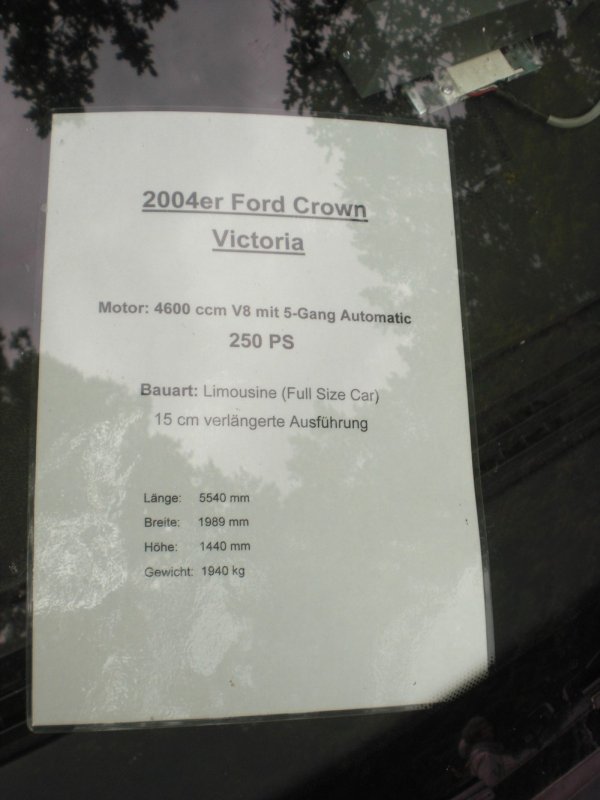 2004er Ford Crown
Victoria
Motor: 4600 ccm V8 mit 5-Gang Automatic
250 PS
Bauart: Limousine (Full Size Car)
15 cm verlängerte Ausführung
Länge: 5540 mm
Breite: 1989 mm
Höhe: 1440 mm
Gewicht: 1940 kg